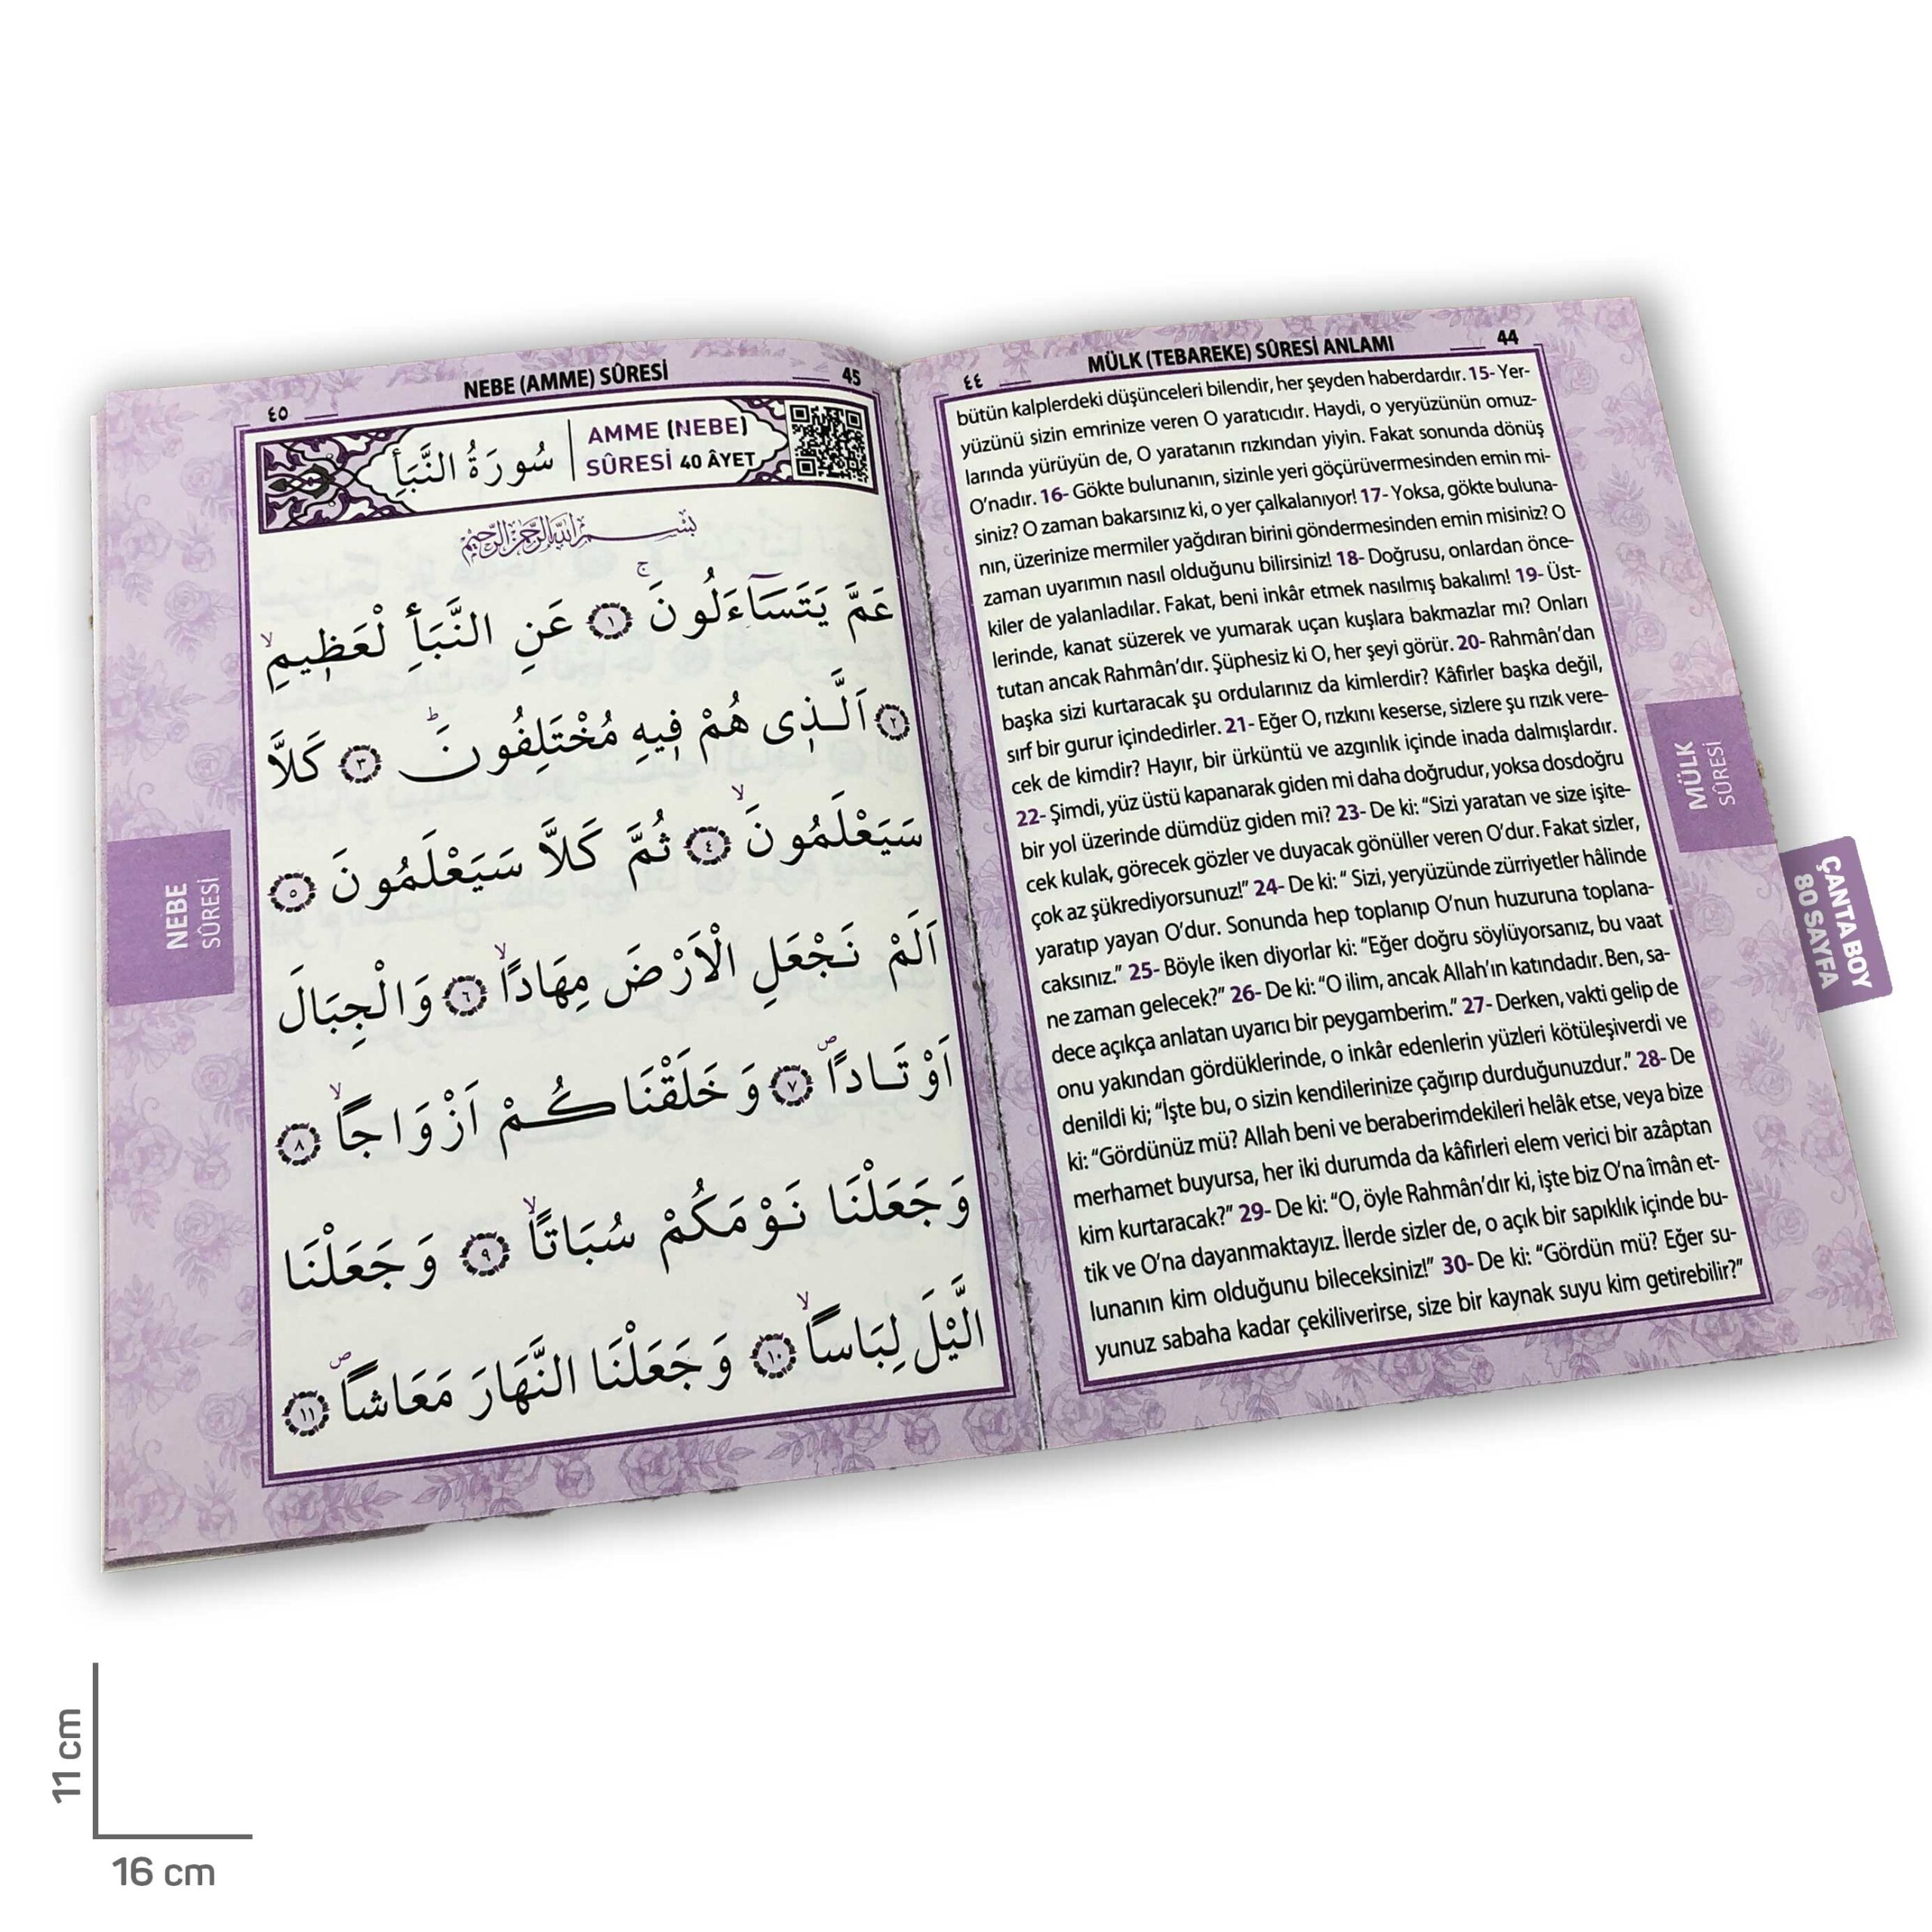 ٤٤
MÜLK (TEBAREKE) SÛRESİ ANLAMI
44
bütün kalplerdeki düşünceleri bilendir, her şeyden haberdardır. 15- Yer-
yüzünü sizin emrinize veren O yaratıcıdır. Haydi, o yeryüzünün omuz-
larında yürüyün de, O yaratanın rızkından yiyin. Fakat sonunda dönüş
O'nadır. 16- Gökte bulunanın, sizinle yeri göçürüvermesinden emin mi-
siniz? O zaman bakarsınız ki, o yer çalkalanıyor! 17- Yoksa, gökte buluna-
nın, üzerinize mermiler yağdıran birini göndermesinden emin misiniz? O
zaman uyarımın nasıl olduğunu bilirsiniz! 18- Doğrusu, onlardan önce-
kiler de yalanladılar. Fakat, beni inkâr etmek nasılmış bakalım! 19- Üst-
lerinde, kanat süzerek ve yumarak uçan kuşlara bakmazlar mı? Onları
tutan ancak Rahmân'dır. Şüphesiz ki O, her şeyi görür. 20- Rahmân'dan
başka sizi kurtaracak şu ordularınız da kimlerdir? Kâfirler başka değil,
sırf bir gurur içindedirler. 21- Eğer O, rızkını keserse, sizlere şu rızık vere-
cek de kimdir? Hayır, bir ürküntü ve azgınlık içinde inada dalmışlardır.
22- Şimdi, yüz üstü kapanarak giden mi daha doğrudur, yoksa dosdoğru
bir yol üzerinde dümdüz giden mi? 23- De ki: “Sizi yaratan ve size işite-
cek kulak, görecek gözler ve duyacak gönüller veren O'dur. Fakat sizler,
çok az şükrediyorsunuz!” 24- De ki: “ Sizi, yeryüzünde zürriyetler hâlinde
yaratıp yayan O'dur. Sonunda hep toplanıp O'nun huzuruna toplana-
caksınız.” 25- Böyle iken diyorlar ki: “Eğer doğru söylüyorsanız, bu vaat
ne zaman gelecek?” 26- De ki: “O ilim, ancak Allah'ın katındadır. Ben, sa-
dece açıkça anlatan uyarıcı bir peygamberim.” 27- Derken, vakti gelip de
onu yakından gördüklerinde, o inkâr edenlerin yüzleri kötüleşiverdi ve
denildi ki; “İşte bu, o sizin kendilerinize çağırıp durduğunuzdur.” 28- De
ki: “Gördünüz mü? Allah beni ve beraberimdekileri helâk etse, veya bize
merhamet buyursa, her iki durumda da kâfirleri elem verici bir azâptan
kim kurtaracak?” 29- De ki: “O, öyle Rahmân'dır ki, işte biz O'na îmân et-
tik ve O'na dayanmaktayız. İlerde sizler de, o açık bir sapıklık içinde bu-
lunanın kim olduğunu bileceksiniz!” 30- De ki: “Gördün mü? Eğer su-
yunuz sabaha kadar çekiliverirse, size bir kaynak suyu kim getirebilir?”
MÜLK
SÛRESİ
ÇANTA BOY
80 SAYFA
٤٥
NEBE (AMME) SÛRESİ
45
سُورَةُ النَّبَأِ
AMME (NEBE)
SÛRESİ 40 ÂYET
بِسْمِ اللهِ الرَّحْمٰنِ الرَّحِيمِ
عَمَّ يَتَسَٓاءَلُونَۚ ١ عَنِ النَّبَأِ لْعَظ۪يمِۙ
٢ اَلَّذ۪ى هُمْ ف۪يهِ مُخْتَلِفُونَۜ ٣ كَلَّا
سَيَعْلَمُونَۙ ٤ ثُمَّ كَلَّا سَيَعْلَمُونَ ٥
اَلَمْ نَجْعَلِ الْاَرْضَ مِهَادًاۙ ٦ وَالْجِبَالَ
اَوْتَادًاۖ ٧ وَخَلَقْنَاكُمْ اَزْوَاجًاۙ ٨
وَجَعَلْنَا نَوْمَكُمْ سُبَاتًاۙ ٩ وَجَعَلْنَا
الَّيْلَ لِبَاسًاۙ ١٠ وَجَعَلْنَا النَّهَارَ مَعَاشًاۖ ١١
NEBE
SÛRESİ
11 cm
16 cm